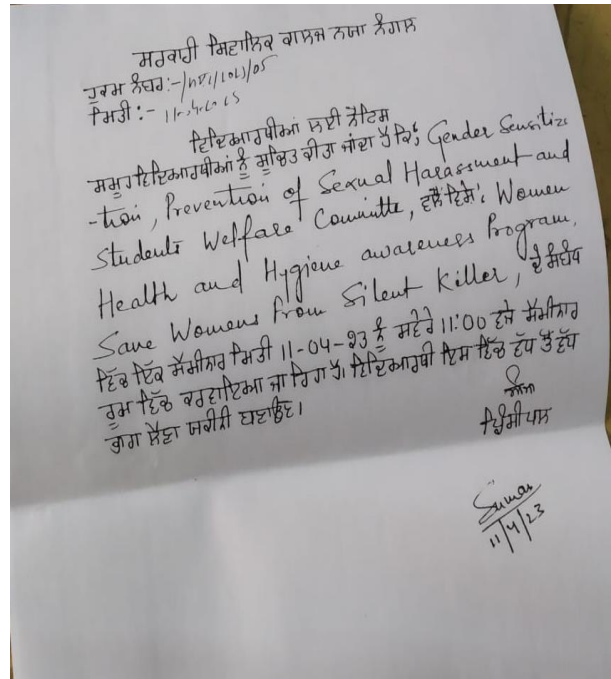 ਸਰਕਾਰੀ ਸ਼ਿਵਾਲਿਕ ਕਾਲਜ ਨਯਾ ਨੰਗਲ
ਹੁਕਮ ਨੰਬਰ:-
ਮਿਤੀ :-
ਵਿਦਿਆਰਥੀਆਂ ਲਈ ਨੋਟਿਸ
ਸਮੂਹ ਵਿਦਿਆਰਥੀਆਂ ਨੂੰ ਸੂਚਿਤ ਕੀਤਾ ਜਾਂਦਾ ਹੈ ਕਿ, Gender Sensitiza
-tion, Prevention of Sexual Harassment and
Students Welfare Committe, ਵਲੋਂ ਵਿਸ਼ੇ: Women
Health and Hygiene awareness Program,
Save Womens from Silent Killer, ਦੇ ਸੰਬੰਧ
ਵਿੱਚ ਇੱਕ ਸੈਮੀਨਾਰ ਮਿਤੀ 11-04-23 ਨੂੰ ਸਵੇਰੇ 11:00 ਵਜੇ ਸੈਮੀਨਾਰ
ਰੂਮ ਵਿੱਚ ਕਰਵਾਇਆ ਜਾ ਰਿਹਾ ਹੈ। ਵਿਦਿਆਰਥੀ ਇਸ ਵਿੱਚ ਵੱਧ ਤੋਂ ਵੱਧ
ਭਾਗ ਲੈਣਾ ਯਕੀਨੀ ਬਣਾਉਣ।
ਪ੍ਰਿੰਸੀਪਲ
Suman
11/4/23